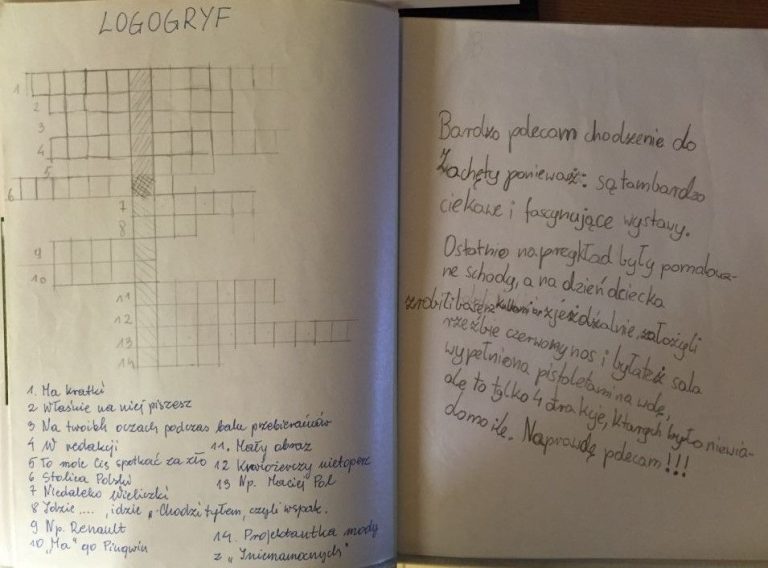 LOGOGRYF
1
2
3
4
5
6
7
8
9
10
11
12
13
14
1. Ma kratki
2 Właśnie na niej piszesz
3 Na twoich oczach podczas balu przebierańców
4 W redakcji
5 To może Cię spotkać za zło
6 Stolica Polski
7 Niedaleko Wieliczki
8 Idzie ...., idzie „Chodzi tyłem, czyli wspak.
9 Np. Renault
10 „Ma" go Pingwin
11. Mały obraz
12 Krwiożerczy nietoperz
13 Np. Maciej Pol
14. Projektantka mody
z „Iniemamocnych"
Bardzo polecam chodzenie do
Zachęty ponieważ: są tam bardzo
ciekawe i fascynujące wystawy.
Ostatnio na pregkład były pomalowa-
ne schody, a na dzień dziecka
zrobili basen z kulkami i zjeżdżalnie, założyli
rzeźbie czerwony nos i była też sala
wypełniona pistoletami na wodę,
ale to tylko 4 atrakcje, ktårych było niewia-
domo ile. Naprawdę polecam!!!